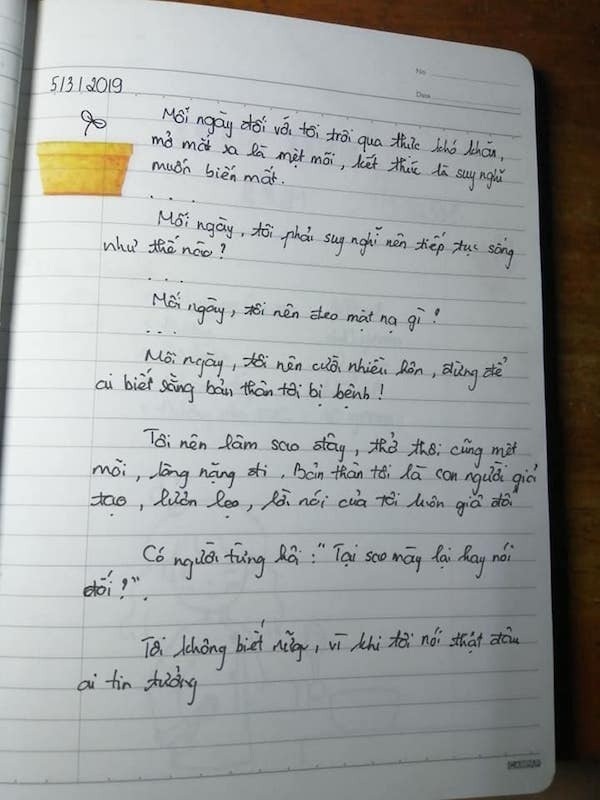 No
Date
5/3/2019
Mỗi ngày đối với tôi trôi qua thực khó khăn,
mở mắt ra là mệt mỏi, kết thúc là suy nghĩ
muốn biến mất.
. . . .
Mỗi ngày, tôi phải suy nghĩ nên tiếp tục sống
như thế nào?
. . . .
Mỗi ngày, tôi nên đeo mặt nạ gì?
. . . .
Mỗi ngày, tôi nên cười nhiều hơn, đừng để
ai biết rằng bản thân tôi bị bệnh!
Tôi nên làm sao đây, thở thôi cũng mệt
mỏi, lòng nặng đi. Bản thân tôi là con người giả
tạo, lươn lẹo, lời nói của tôi luôn giả dối
Có người từng hỏi: "Tại sao mày lại hay nói
dối?".
Tôi không biết nữa, vì khi tôi nói thật đâu
ai tin tưởng
CAMPAP